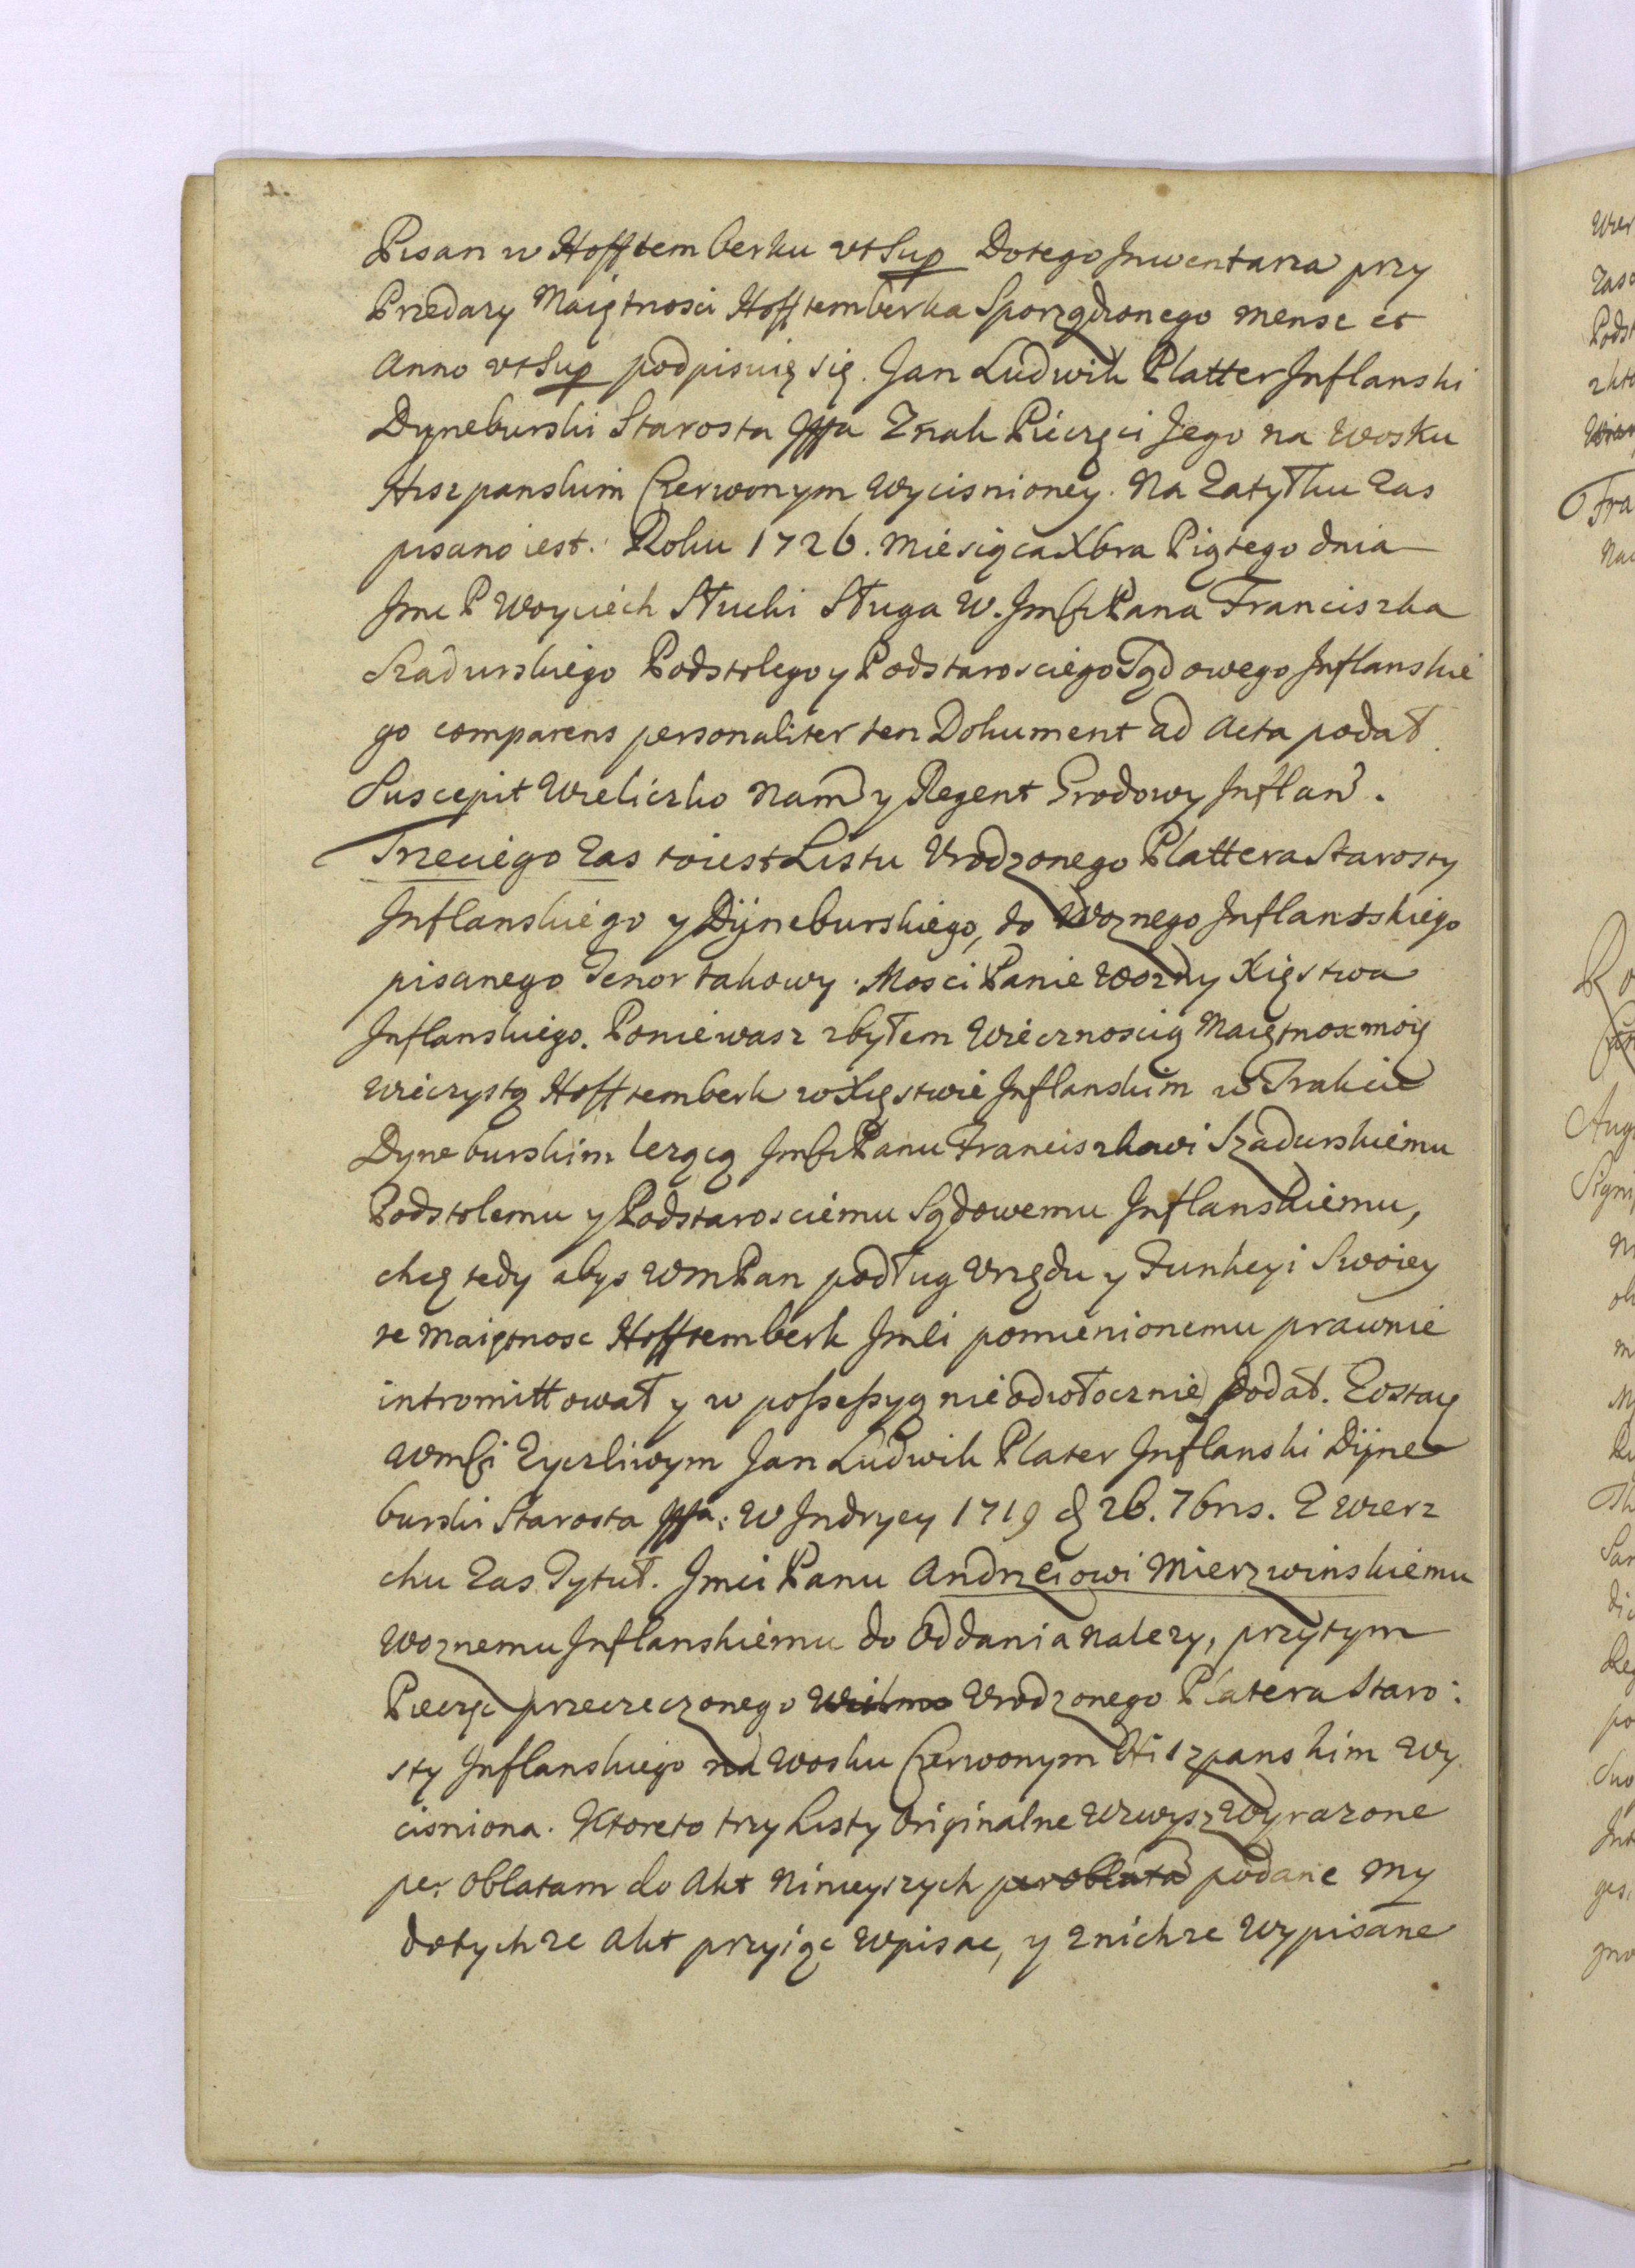 Pisan w Hofftemberku vt Sup Do tego Inwentarza przy
Przedazy Maiętnosci Hofftemberka Sporządzonego mense et
Anno vt Sup podpisuię się. Jan Ludwik Platter Inflanski
Dyneburski Starosta Znak Pieczęci Jego na Wosku
Hiszpanskim Czerwonym Wycisnioney. Na Zatyłku Zas
pisano iest. Roku 1726. Miesiąca Xbra Piątego dnia
Jmc P Woyciech Słucki Sługa W. Jmści Pana Franciszka
Szadurskiego Podstolego y Podstarosciego Sądowego Inflanskie
go comparens personaliter ten Dokument ad Acta podał.
Suscepit Wieliczko Nam y Regent Grodowy Inflan.
Trzeciego Zas to iest Listu Vrodzonego Plattera Starosty
Inflanskiego y Dÿneburskiego, do Woznego Inflantskiego
pisanego Tenor takowy. Mosci Panie Wozny Xięstwa
Inflanskiego. Poniewasz zbyłem Wiecznoscią Maiętnosc moię
wieczystą Hofftemberk w Xięstwie Inflanskim w Trakcie
Dyneburskim lezącą Jmści Panu Franciszkowi Szadurskiemu
Podstolemu y Podstarosciemu Sądowemu Inflanskiemu,
chcę tedy abys WmPan podług Vrzędu y Funkcyi Swoiey
te Maiętnosc Hofftemberk Jmści pomienionemu prawnie
intromittował y w possessyą nieodwłocznie podał. Zostaię
Wmści Zyczliwym Jan Ludwik Plater Inflanski Dÿne
burski Starosta : W Indrycy 1719 d 26. 7bris. Z Wierz
chu Zas Tytuł. Jmci Panu Andrzeiowi Mierzwinskiemu
Woznemu Inflanskiemu do Oddania Nalezy, przytym
Pieczęc przerzeczonego Vrodzonego Platera Staro:
sty Inflanskiego na Wosku Czerwonym Hiszpanskim Wy
cisniona. Ktore to trzy Listy Originalne Wzwysz Wyrazone
per Oblatam do Akt Ninieyszych per oblata podane My
do tychze Akt przyiąc Wpisac, y z nichze Wypisane